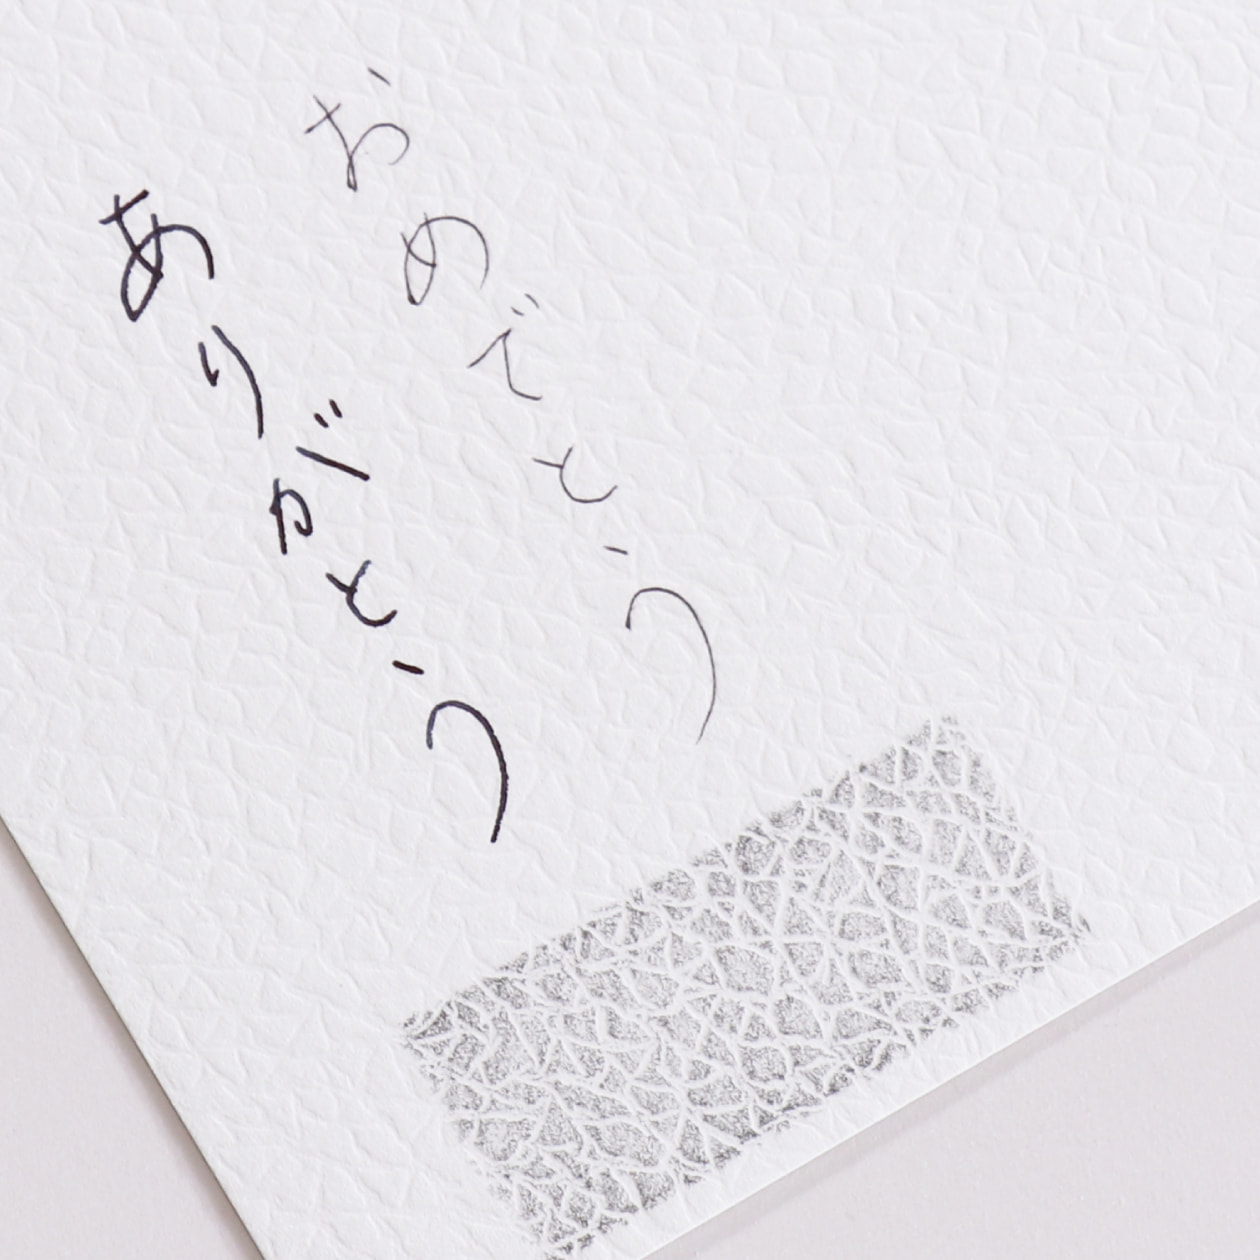 おめでとう
ありがとう